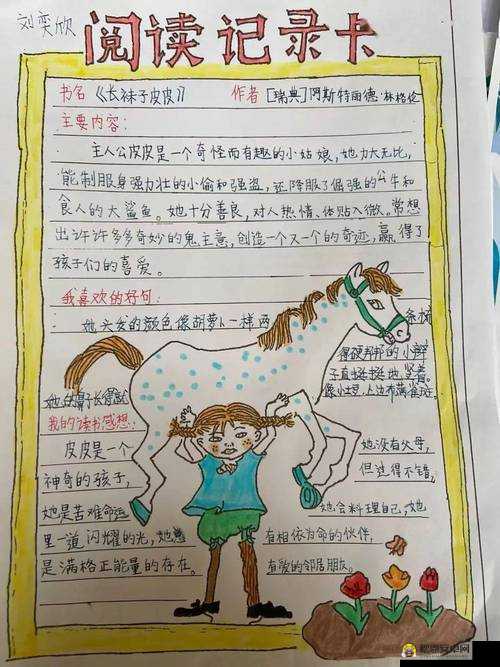 刘奕欣
阅读记录卡
书名《长袜子皮皮》 作者[瑞典]阿斯特丽德·林格伦
主要内容:
主人公皮皮是一个奇怪而有趣的小姑娘,她力大无比,
能制服身强力壮的小偷和强盗,还降服了倔强的公牛和
食人的大鲨鱼。她十分善良,对人热情、体贴入微。常想
出许许多多奇妙的鬼主意,创造一个又一个的奇迹,赢得了
孩子们的喜爱。
我喜欢的好句:
她头发的颜色像胡萝卜一样两条梳
得硬邦邦的小辫
子直挺挺地竖着。
她的鼻子长得就像小土豆,上边布满雀斑。
我的读书感想:
皮皮是一个
神奇的孩子,
她是苦难命运
里一道闪耀的光,她
是满格正能量的存在。
她没有父母,
但过得不错,
她会料理自己,她
有相依为命的伙伴,
有爱的邻居朋友。